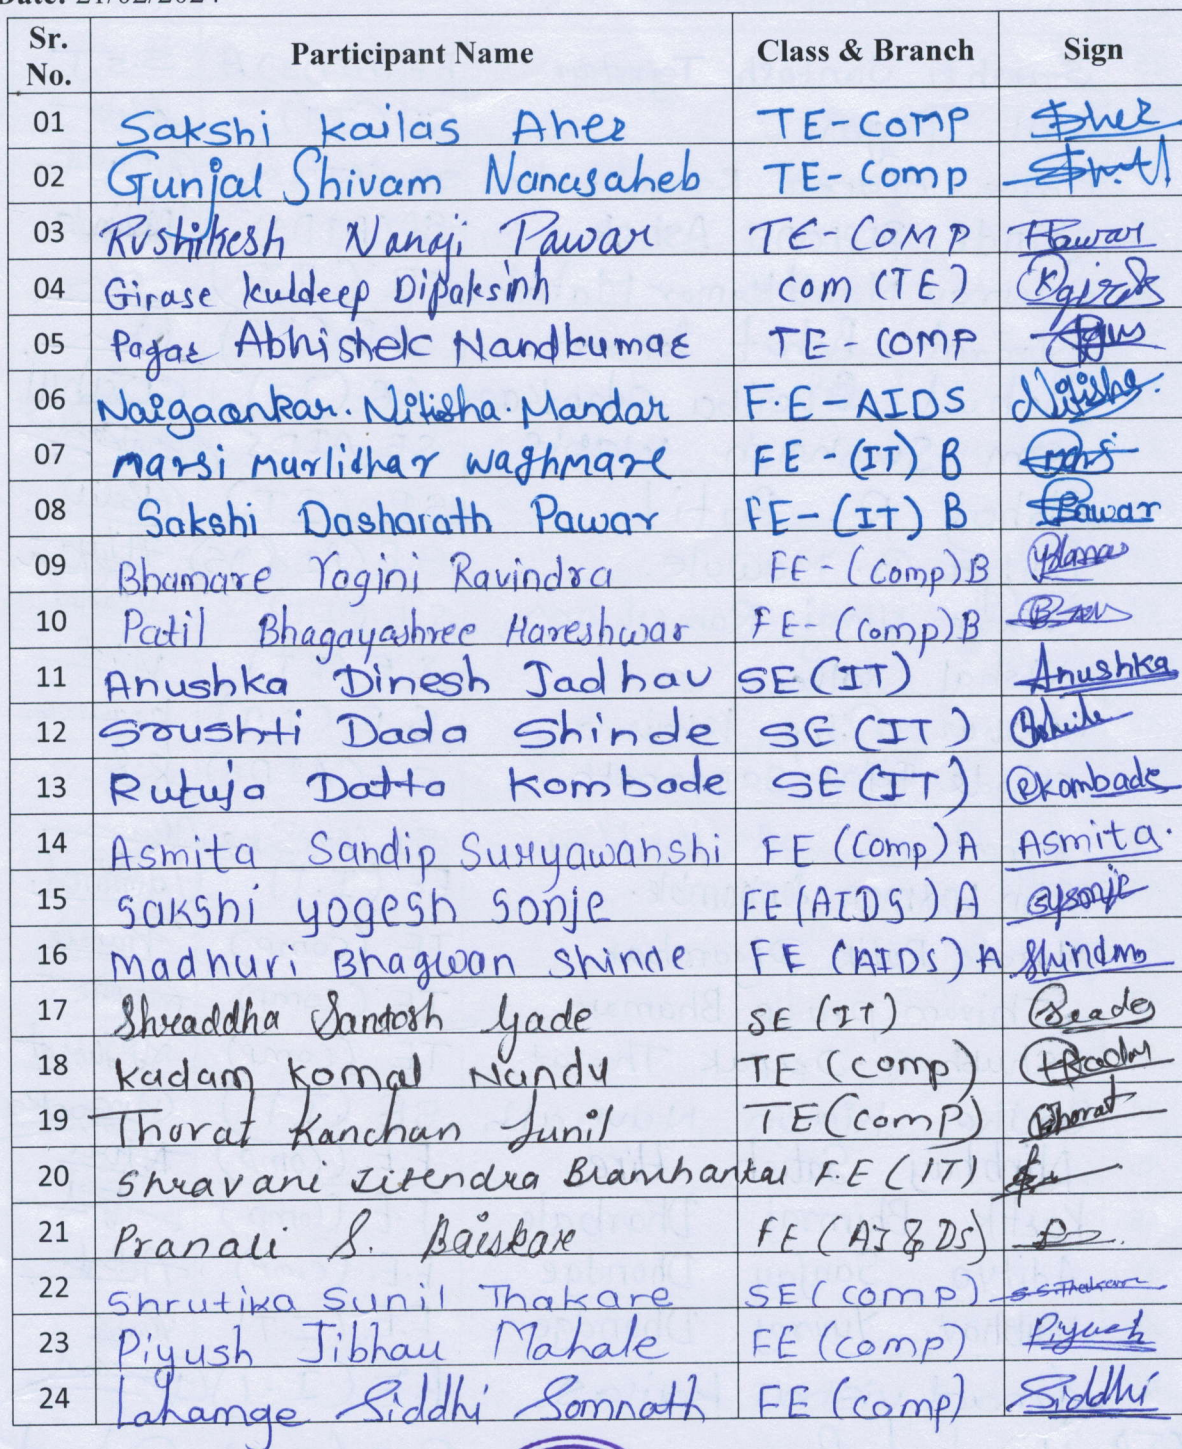 Date: 21/02/2024
Sr. No. Participant Name Class & Branch Sign
01 Sakshi Kailas Aher TE-COMP Aher
02 Gunjal Shivam Nanasaheb TE-Comp
03 Rushikesh Nanaji Pawar TE-COMP Pawar
04 Girase Kuldeep Dipaksinh Com (TE)
05 Pagar Abhishek Nandkumar TE-COMP
06 Naigaonkar. Nitisha. Mandar F.E-AIDS Nitisha.
07 Mansi Murlidhar Waghmare FE-(IT) B
08 Sakshi Dasharath Pawar FE-(IT) B Pawar
09 Bhamare Yogini Ravindra FE-(Comp)B
10 Patil Bhagayashree Hareshwar FE-(Comp)B
11 Anushka Dinesh Jadhav SE(IT) Anushka
12 Srushti Dada Shinde SE (IT)
13 Rutuja Datta Kombade SE (IT) Rkombade
14 Asmita Sandip Suryawanshi FE (Comp) A Asmita.
15 Sakshi Yogesh Sonje FE (AIDS) A sysonje
16 Madhuri Bhagwan Shinde FE (AIDS) A
17 Shraddha Santosh Gade SE (IT)
18 Kadam Komal Nandu TE (Comp)
19 Thorat Kanchan Sunil TE (Comp) Thorat
20 Shravani Jitendra Bramhankar F.E (IT)
21 Pranali S. Baiskar FE (AI & DS)
22 Shrutika Sunil Thakare SE (Comp) S.S.Thakare
23 Piyush Jibhau Mahale FE (Comp) Piyush
24 Lahamge Siddhi Somnath FE (Comp) Siddhi